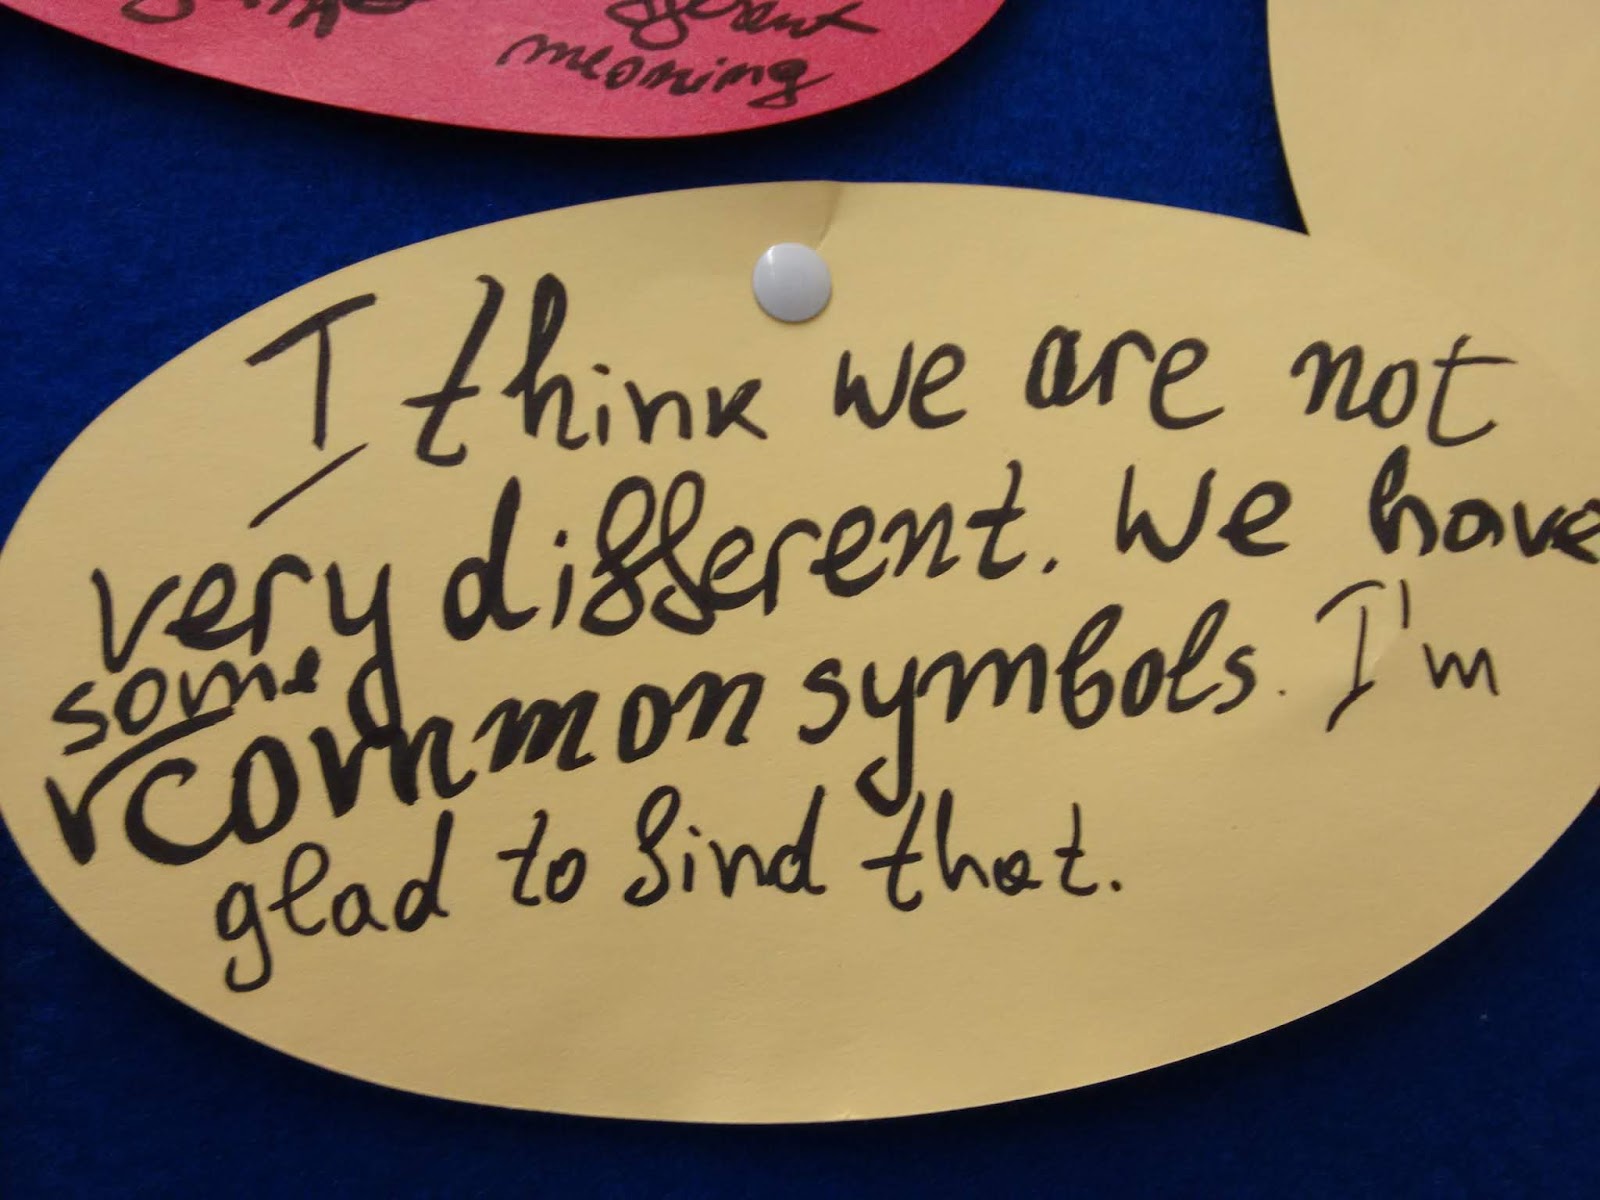 different
meaning
I think we are not
very different. We have
some
common symbols. I'm
glad to find that.